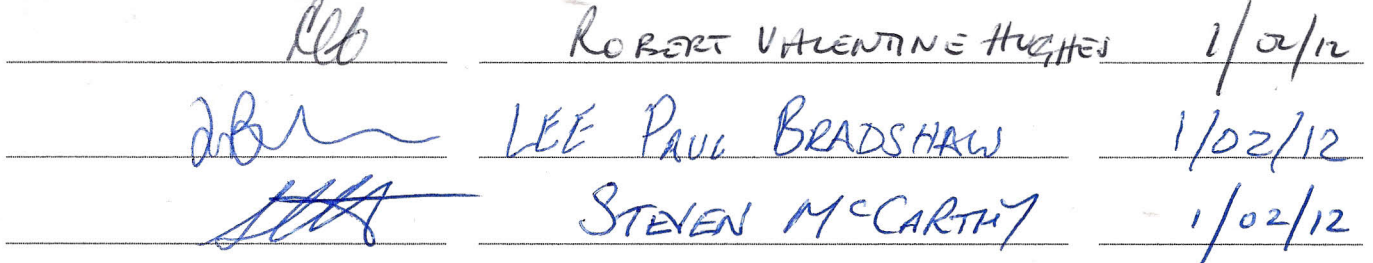 ROBERT VALENTINE HUGHES 1/02/12
LEE PAUL BRADSHAW 1/02/12
STEVEN McCARTHY 1/02/12